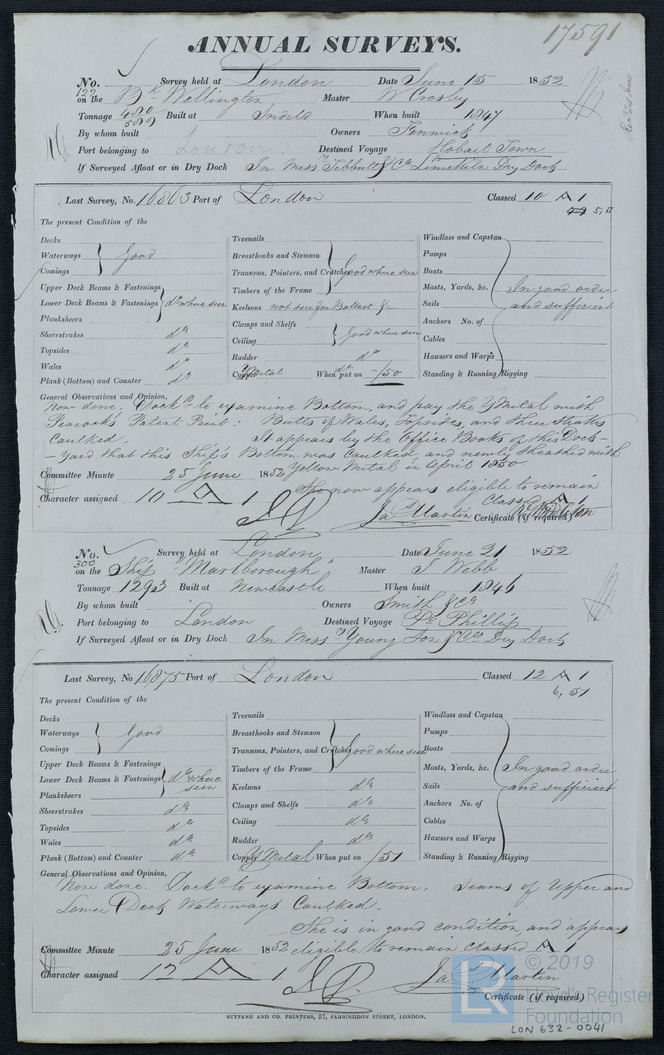 17591
ANNUAL SURVEYS.
No. 122 Survey held at London Date June 15 1852
on the Bk Wellington Master W Crosby
Tonnage 480 509 Built at When built 1847
By whom built Owners Fenwick
Port belonging to London Destined Voyage Hobart Town
If Surveyed Afloat or in Dry Dock In Messrs Tibbutt & Co Limekiln Dry Dock
Last Survey, No. 16863 Port of London Classed 10 A 1
5, 51
The present Condition of the
Decks
Waterways } Good
Comings
Upper Deck Beams & Fastenings
Lower Deck Beams & Fastenings } do where seen
Planksheers
Sheerstrakes do
Topsides do
Wales do
Plank (Bottom) and Counter do
Treenails
Breasthooks and Stemson
Transons, Pointers, and Crutches } Good where seen
Timbers of the Frame
Keelsons not seen for Ballast &c
Clamps and Shelfs
Ceiling } Good where seen
Rudder do
Copper Y Metal When put on /50
Windlass and Capstan
Pumps
Boats
Masts, Yards, &c. } In good order
Sails and sufficient
Anchors No. of
Cables
Hawsers and Warps
Standing & Running Rigging
General Observations and Opinion,
Now done. Dockd to examine Bottom, and pay the Y Metal with
Peacock's Patent Paint: Butts of Wales, Topsides, and Sheer Strakes
Caulked. It appears by the Office Books of this Dock-
-yard that this Ship's Bottom was Caulked and newly sheathed with
Yellow Metal in April 1850
Committee Minute 25 June 1852
She now appears eligible to remain
Classed A 1
Character assigned 10 A 1
Jas Martin Certificate (if required)
No. 300 Survey held at London Date June 21 1852
on the Ship "Marlborough" Master J Webb
Tonnage 1293 Built at Newcastle When built 1846
By whom built Owners Smith & Co
Port belonging to London Destined Voyage Pt Phillip
If Surveyed Afloat or in Dry Dock In Messrs Young Son & Co's Dry Dock
Last Survey, No 16875 Port of London Classed 12 A 1
6, 51
The present Condition of the
Decks
Waterways } Good
Comings
Upper Deck Beams & Fastenings
Lower Deck Beams & Fastenings } do where seen
Planksheers
Sheerstrakes do
Topsides do
Wales do
Plank (Bottom) and Counter do
Treenails
Breasthooks and Stemson
Transons, Pointers, and Crutches } Good where seen
Timbers of the Frame
Keelsons do
Clamps and Shelfs do
Ceiling do
Rudder do
Copper Y Metal When put on /51
Windlass and Capstan
Pumps
Boats
Masts, Yards, &c. } In good order
Sails and sufficient
Anchors No. of
Cables
Hawsers and Warps
Standing & Running Rigging
General Observations and Opinion,
Now done. Dockd to examine Bottom. Seams of Upper and
Lower Deck Waterways Caulked.
She is in good condition, and appears
Committee Minute 25 June 1852 eligible to remain classed A 1
Character assigned 12 A 1
Jas Martin
Certificate (if required)
SEYFANG AND CO. PRINTERS, 57, FARRINGDON STREET, LONDON.
LR © 2019
Lloyd's Register
Foundation
LON 632-0041